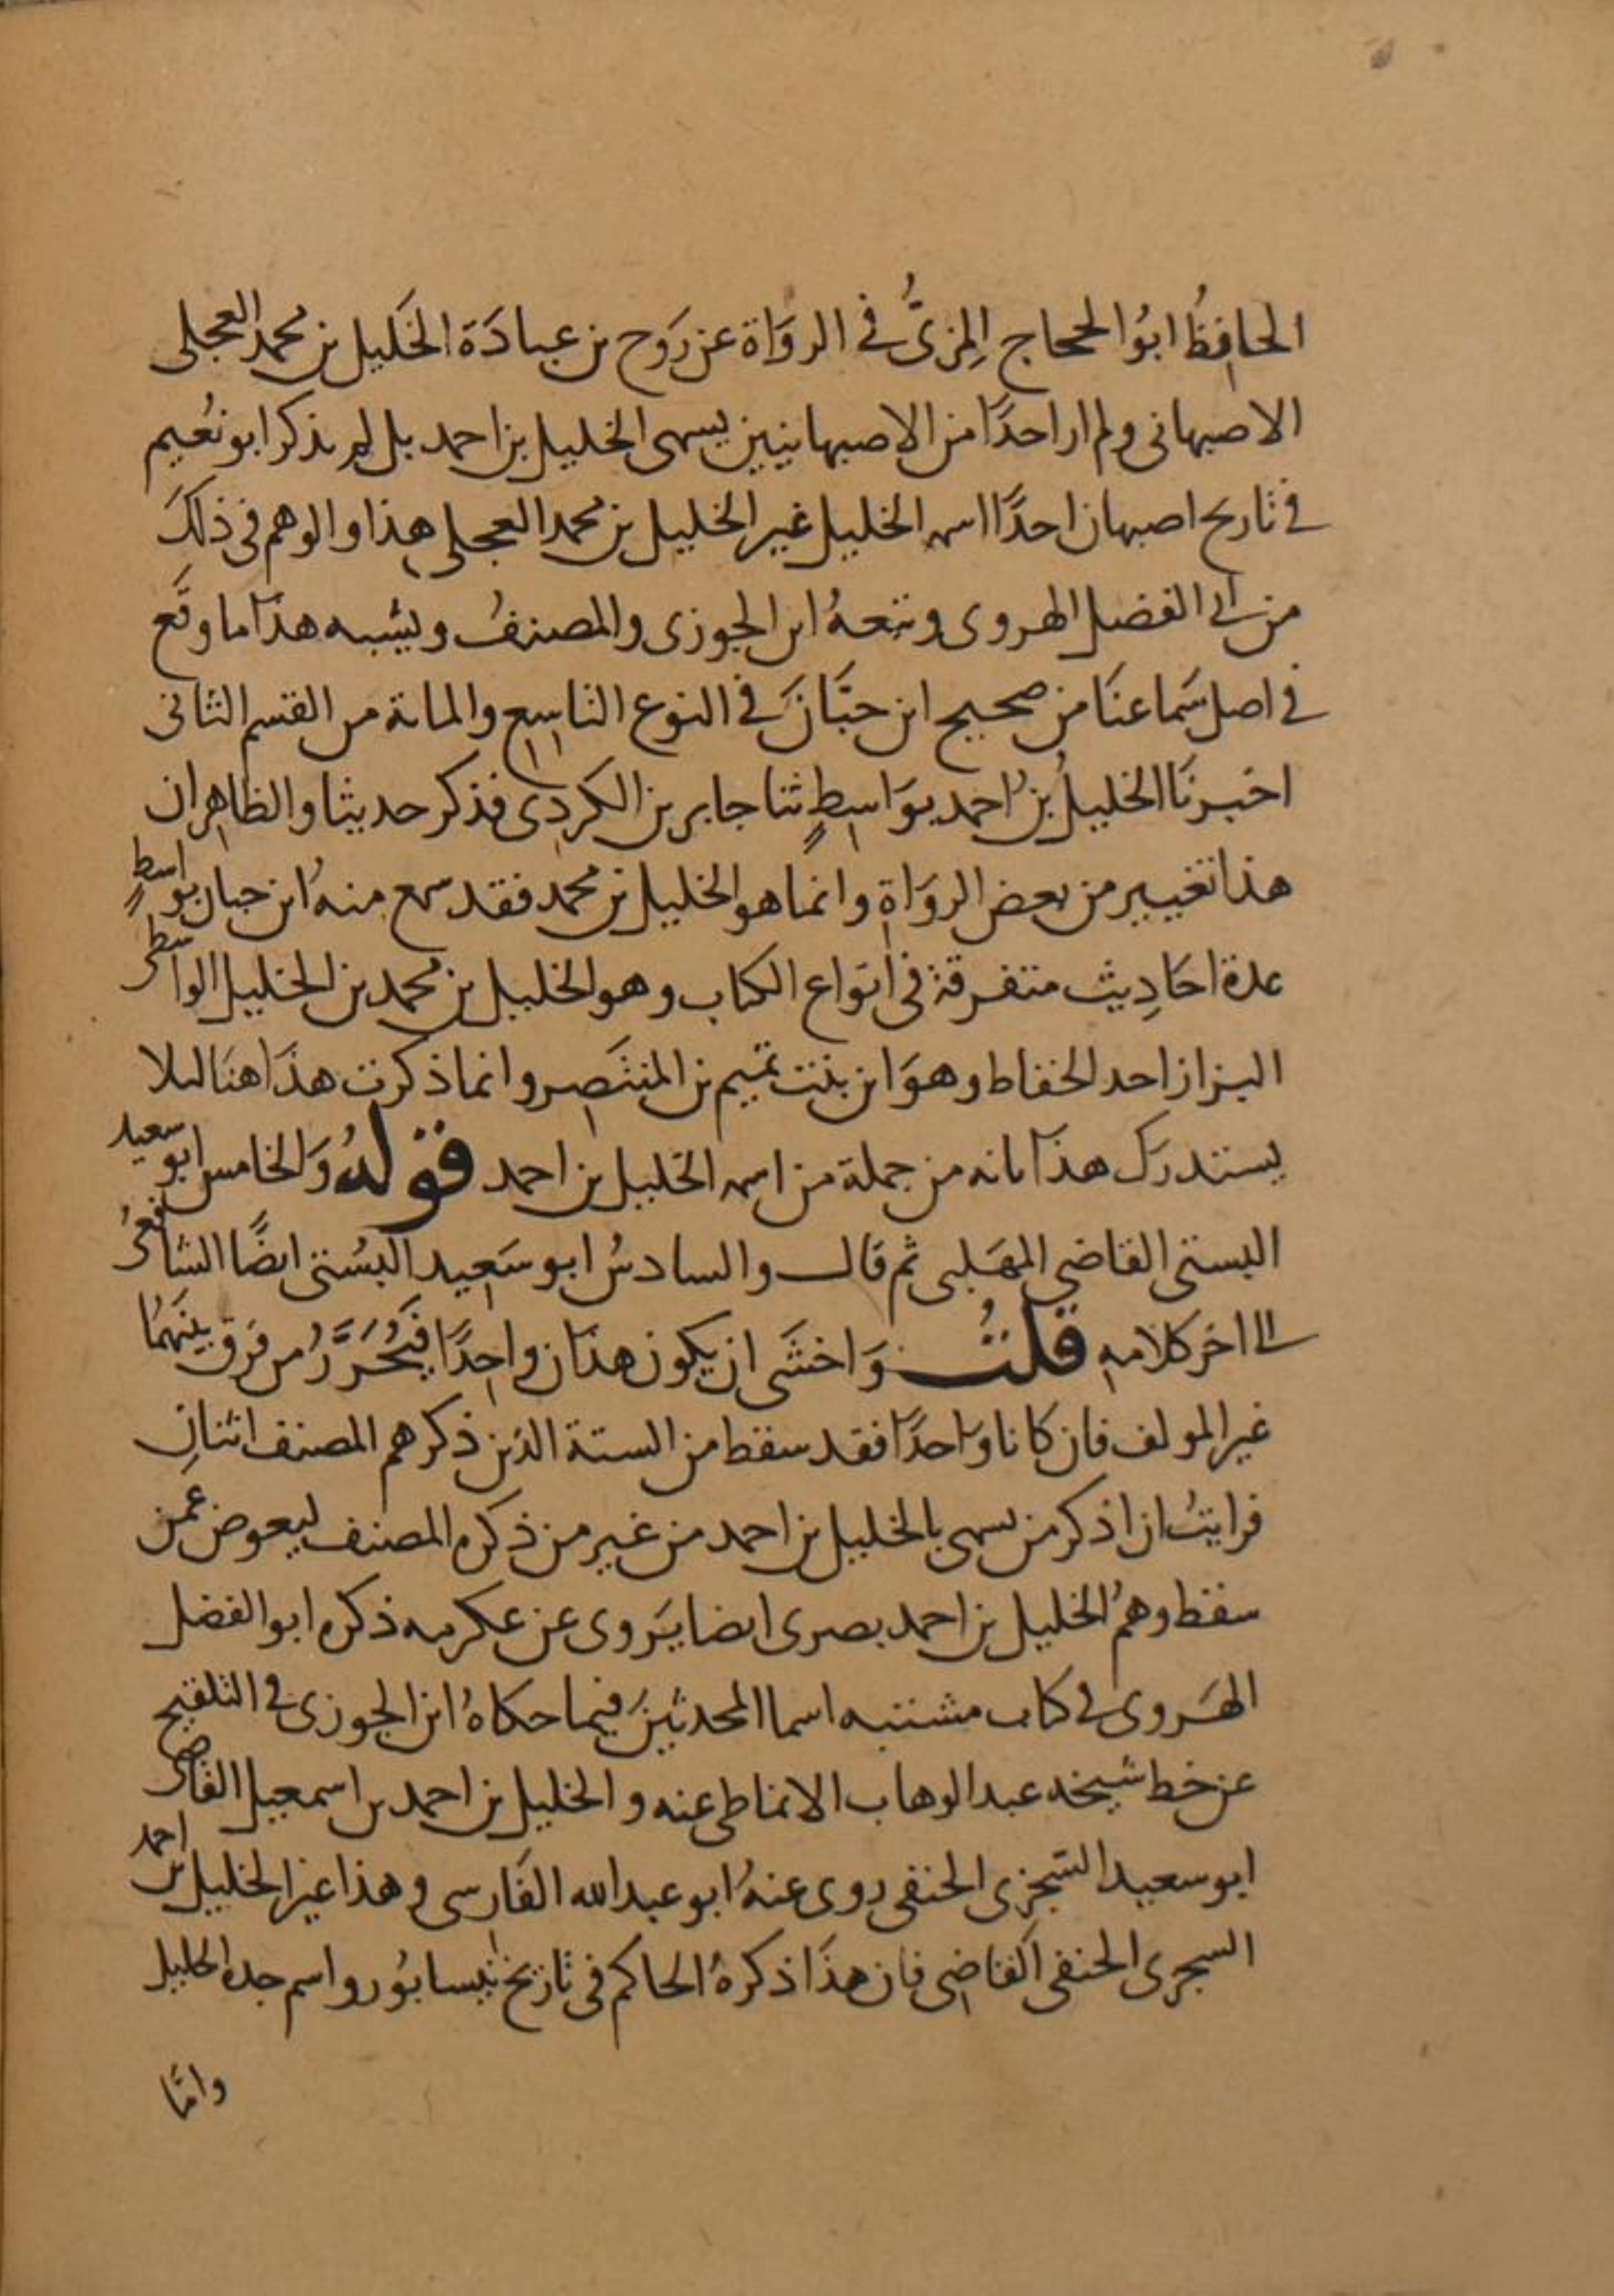 الحافِظُ ابوُ الحجاج المِزىُّ في الروَاة عن رَوح بن عبادَة الخَليل بن محمد العجلى
الاصبهانى ولم ار احدًا من الاصبهانيين يسمى الخليل بن احمد بل لم يذكر ابو نُعيم
في تاريخ اصبهان احدًا اسمه الخليل غير الخليل بن محمد العجلى هذا والوهم في ذلكَ
من ابى الفضل الهروى وتبعهُ ابن الجوزى والمصنفُ ويشبه هذا ما وقَع
في اصل سَماعنَا من صحيح ابن حبَّانَ في النوع التاسع والمائة من القسم الثانى
اخبرنَا الخليلُ بنُ احمد بوَاسطٍ ثنا جابر بن الكردى فذكر حديثا والظاهر ان
هذا تغيير من بعض الروَاة وانما هو الخليل بن محمد فقد سمع منهُ ابن حبان بواسطٍ
عدة احَادِيث متفرقة في انوَاع الكتاب وهو الخليل بن محمد بن الخليل الواسطى
البزاز احد الحفاظ وهوَ ابن بنت تميم بن المنتَصِر وانما ذكرت هذَا هنَا لىلا
يستدرك هذا بانه من جملة من اسمه الخليل بن احمد قولهُ وَالخامس ابو سعيد
البستى القاضى المهَلبى ثم قال والسادسُ ابو سَعِيد البُستى ايضًا الشافعىُ
الى اخر كلامه قلتُ وَاخشَى ان يكون هذَان واحِدًا فيُحَرَّرُ من فرَق بينهُمَا
غير المولف فان كانا وَاحدًا فقد سقط من الستة الذين ذكرهم المصنف اثنانِ
فرايتُ ان اذكر من يسمى بالخليل بن احمد من غير من ذكره المصنف ليعوض عمن
سقط وهمُ الخليل بن احمد بصرى ايضا يَروى عن عكرمه ذكره ابو الفضل
الهَروى في كتاب مشتبه اسما المحدثينَ فيما حكاهُ ابن الجوزى في التلقيح
عن خط شيخه عبد الوهاب الانماطى عنه والخليل بن احمد بن اسمعيل القاضى
ابو سعيد السّجزى الحنفى روى عنهُ ابو عبد الله الفَارسى وهذا غير الخليل بن احمد
السجزى الحنفى القاضِى فان هذَا ذكرهُ الحاكم في تاريخ نيسابوُر واسم جده الخليل
وامَّا